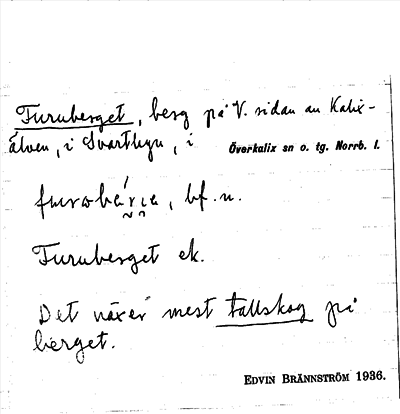 Furuberget, berg på V. sidan av Kalix-
älven, i Svartbyn, i Överkalix sn o. tg. Norrb. l.
bf. n.
Furuberget ek.
Det växer mest tallskog på
berget.
EDVIN BRÄNNSTRÖM 1936.